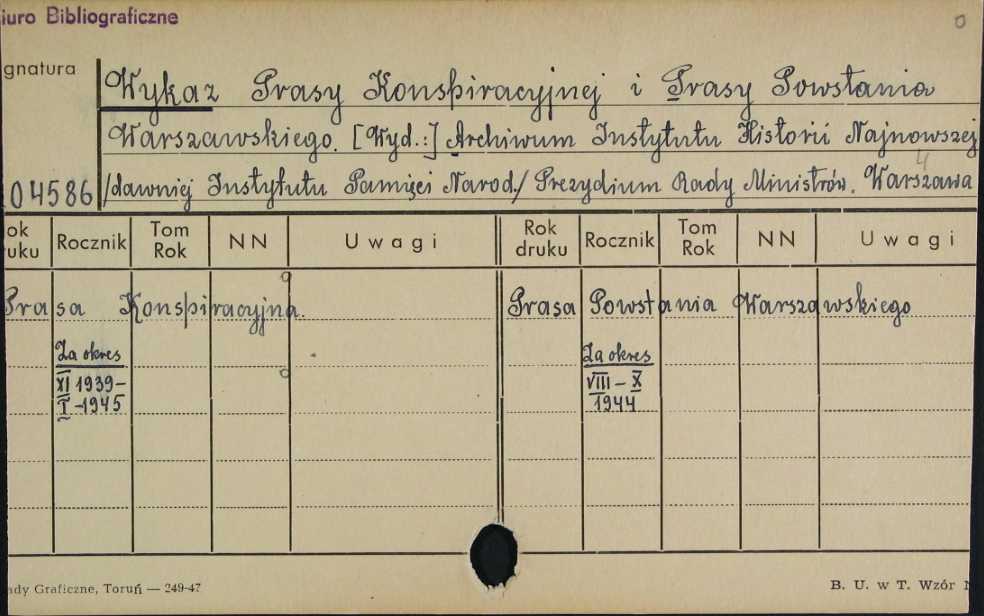 iuro Bibliograficzne
gnatura
Wykaz Prasy Konspiracyjnej i Prasy Powstania
Warszawskiego. [Wyd.:] Archiwum Instytutu Historii Najnowszej
04586 /dawniej Instytutu Pamięci Narod./ Prezydium Rady Ministrów. Warszawa
ok uku Rocznik Tom Rok NN Uwagi Rok druku Rocznik Tom Rok NN Uwagi
Prasa Konspiracyjna. Prasa Powstania Warszawskiego
Za okres Za okres
XI 1939- VIII - X
I -1945 1944
ady Graficzne, Toruń — 249-47 B. U. w T. Wzór